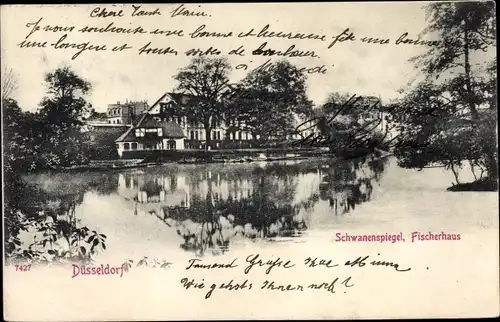 Chère Tante Marie
Je vous souhaite une bonne et heureuse fête une bonne
une longue et toutes sortes de bonheur
de
Schwanenspiegel, Fischerhaus
7427
Düsseldorf
Tausend Grüsse Ihre Minna
Wie geht's Ihnen noch?